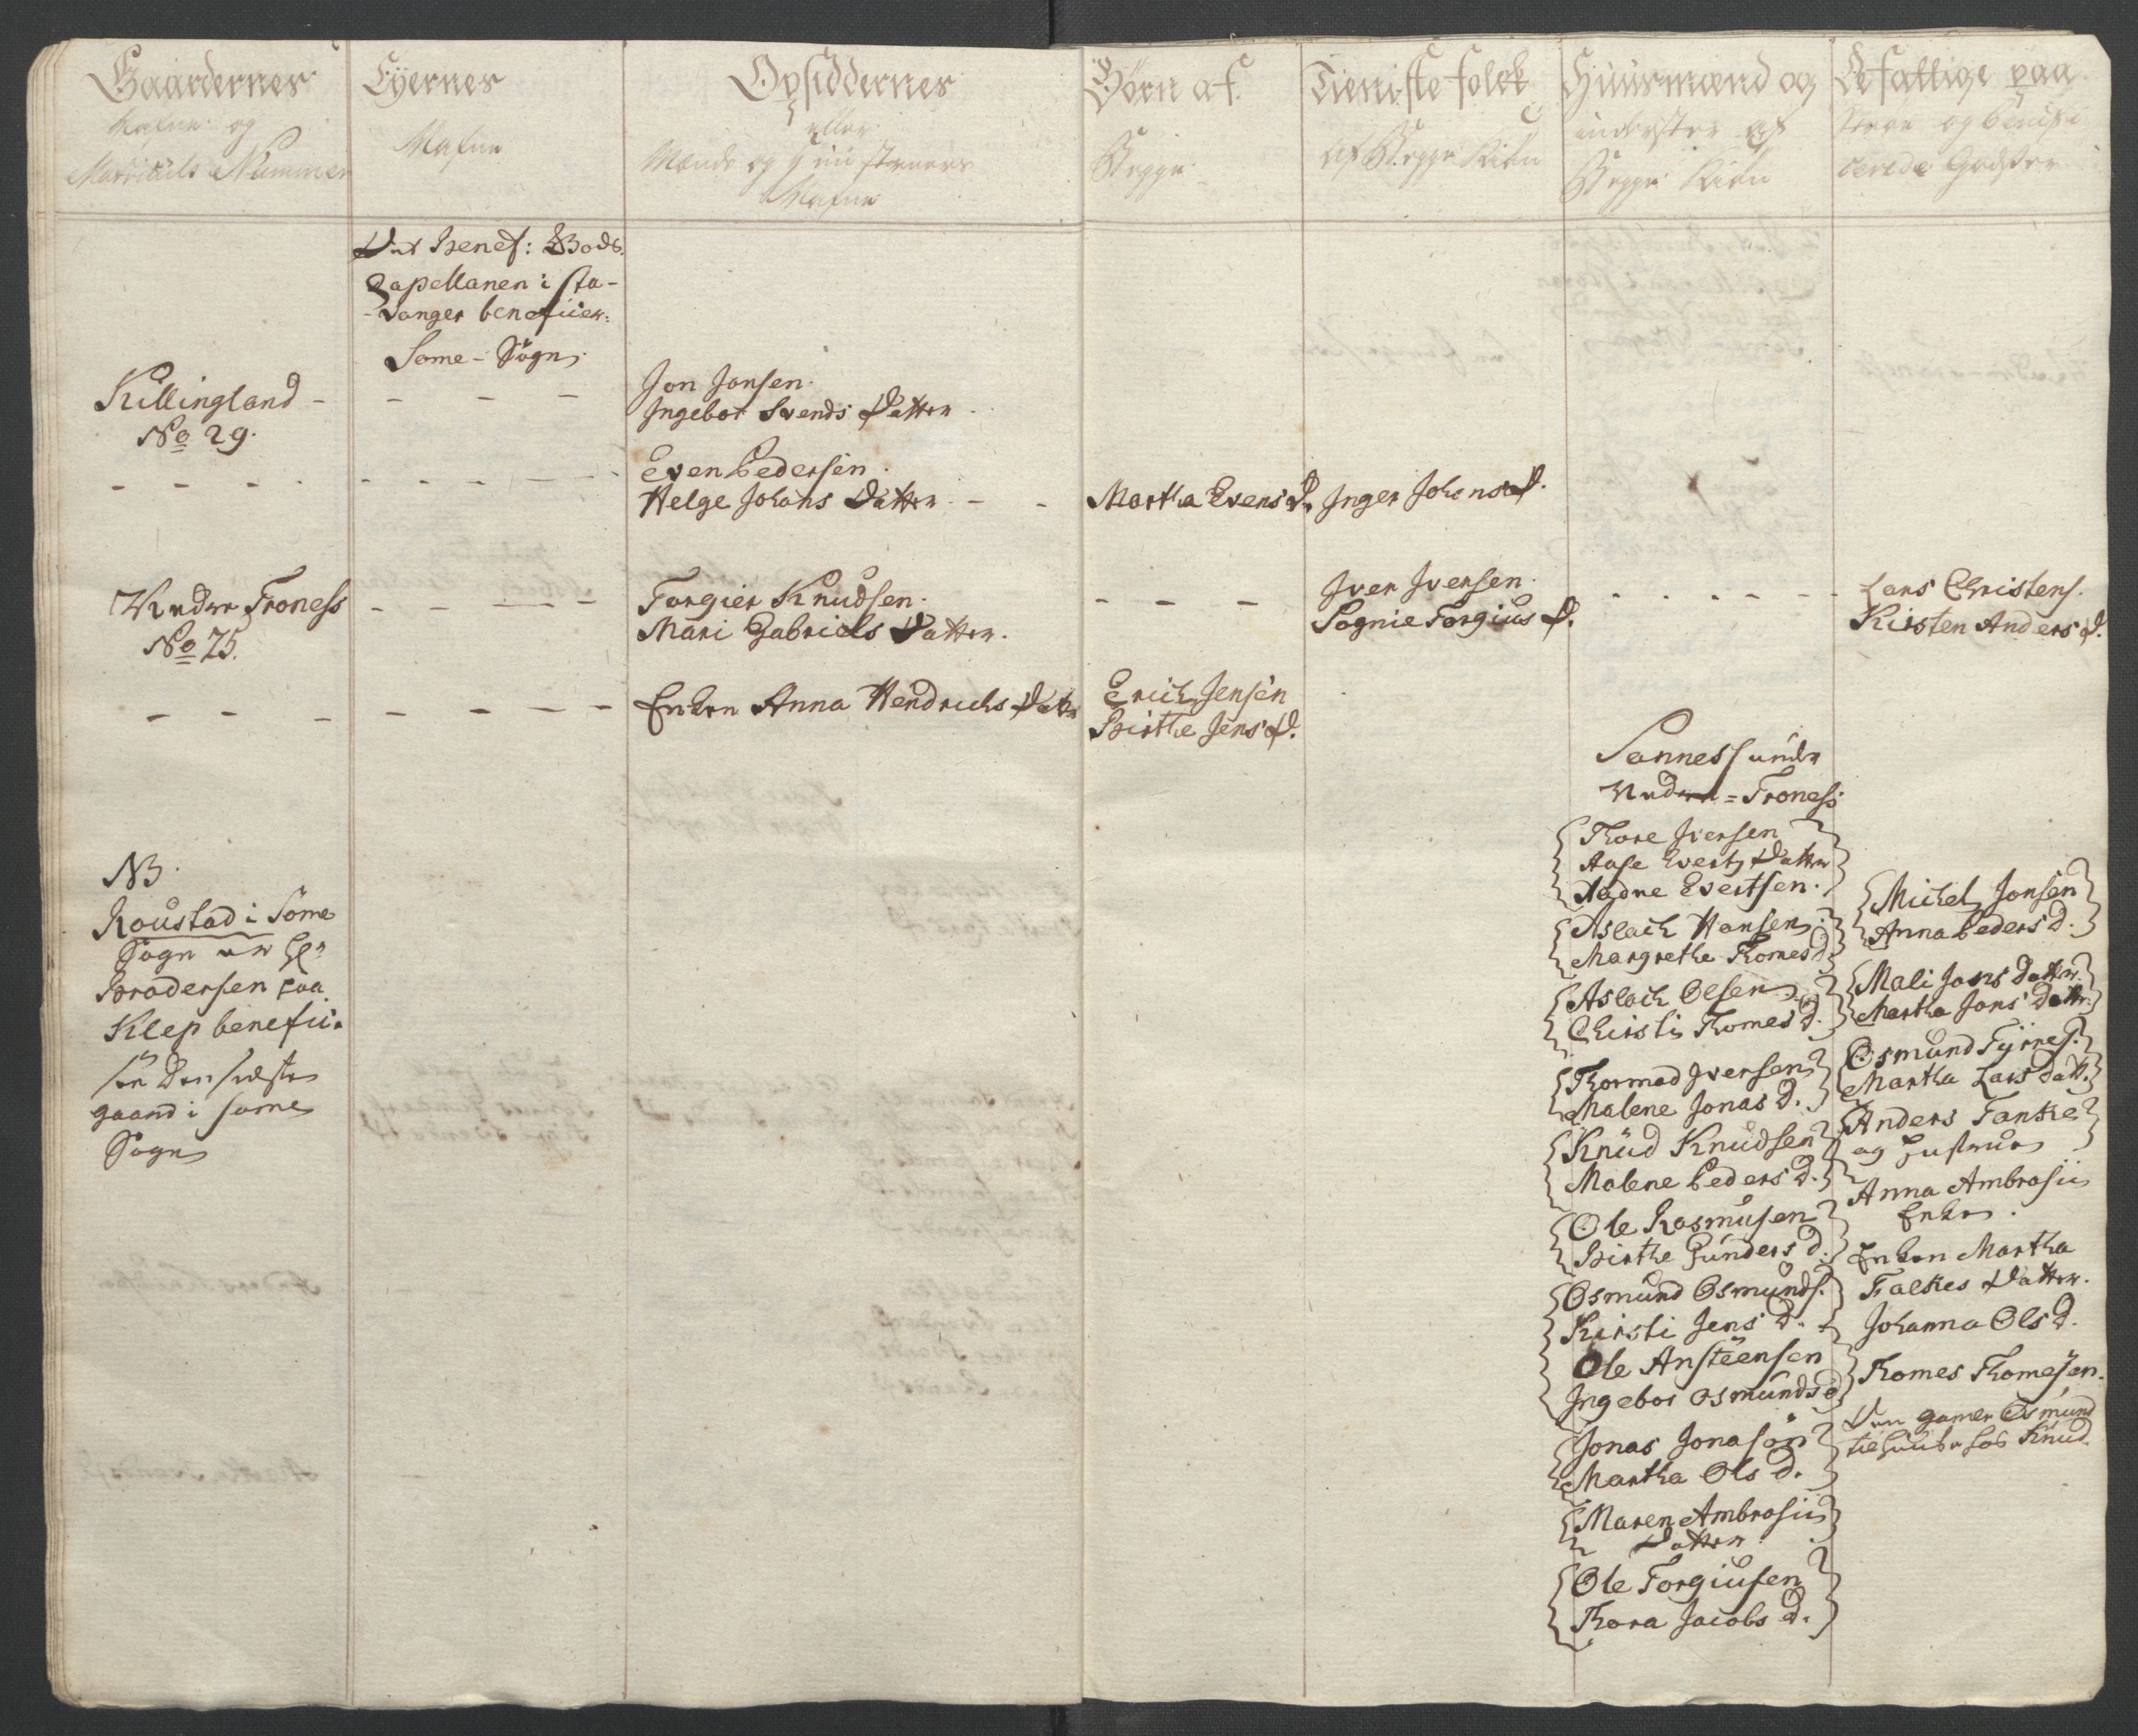 Gaardernes
Nafne og
Matriculs Nummer
Eyernes
Nafne
Opsiddernes
eller
Mænds og Qui
Nafne
Børn af
Begge
Tieniste folck
af Begge Kiøn
Huusmænd og
inderster af
Begge Kiøn
Befattige paa
og benifi
cerede Godster
Det Benef: Bods.
Capellanen i Sta-
-vanger beneficer:
Some - Sogn.
Killingland - - - -
No 29.
Jon Jonsen.
Ingebor Svends Datter
Even Pedersen.
Helge Johans Datter - -
Martha Evens D.
Inger Johans D.
Nedre Froness - - - -
No 75.
Torgier Knudsen.
Mari Gabriels Datter.
Iver Iversen.
Sognie Torgius D.
Lars Christens.
Kirsten Anders D.
Enken Anna Hendrichs Datt
Erich Jensen
Birthe Jens D.
NB.
Roustad i Some
Sogn er
Brodersen paa
Klep benefici.
den
gaard i some
Sogn
Sannes under
Nedre = Froness
Thore Iversen
Aase Everts Datter
Aadne Evertsen.
Aslach Hansen
Margrethe Thomes D.
Aslach Olsen
Christi Thomes D.
Thormod Iversen
Malene Jonas D.
Knud Knudsen
Malene Peders D.
Ole Rasmusen
Birthe Gunders D.
Osmund Osmunds.
Kirsti Jens D.
Ole Ansteensen
Ingebor Osmunds D
Jonas Jonasøn
Martha Ols D.
Maren Ambrosii
Datter
Ole Torgiusen
Thora Jacobs D.
Michel Jonsen
Anna Peders D.
Mali Jons Datter.
Martha Jons Datter.
Osmund Tyrres.
Martha Lars Datt.
Anders Tanke
og Hustrue
Anna Ambrosii
Enke.
Enken Martha
Falkes Datter.
Johanna Ols D.
Thomes Thomesen.
Den gamle Osmund
til huus hos Knud